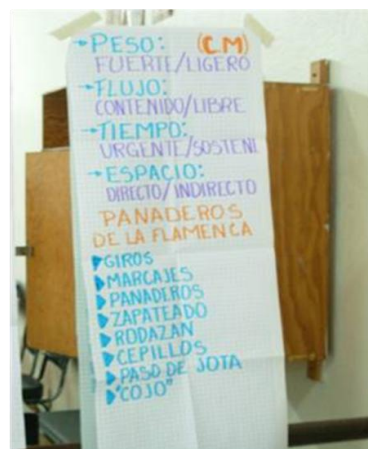 →PESO: (C.M)
FUERTE/LIGERO
→FLUJO:
CONTENIDO/LIBRE
→TIEMPO:
URGENTE/SOSTENI
→ESPACIO:
DIRECTO/INDIRECTO
PANADEROS
DE LA FLAMENCA
▶GIROS
▶MARCAJES
▶PANADEROS
▶ZAPATEADO
▶RODAZAN
▶CEPILLOS
▶PASO DE JOTA
▶"COJO"